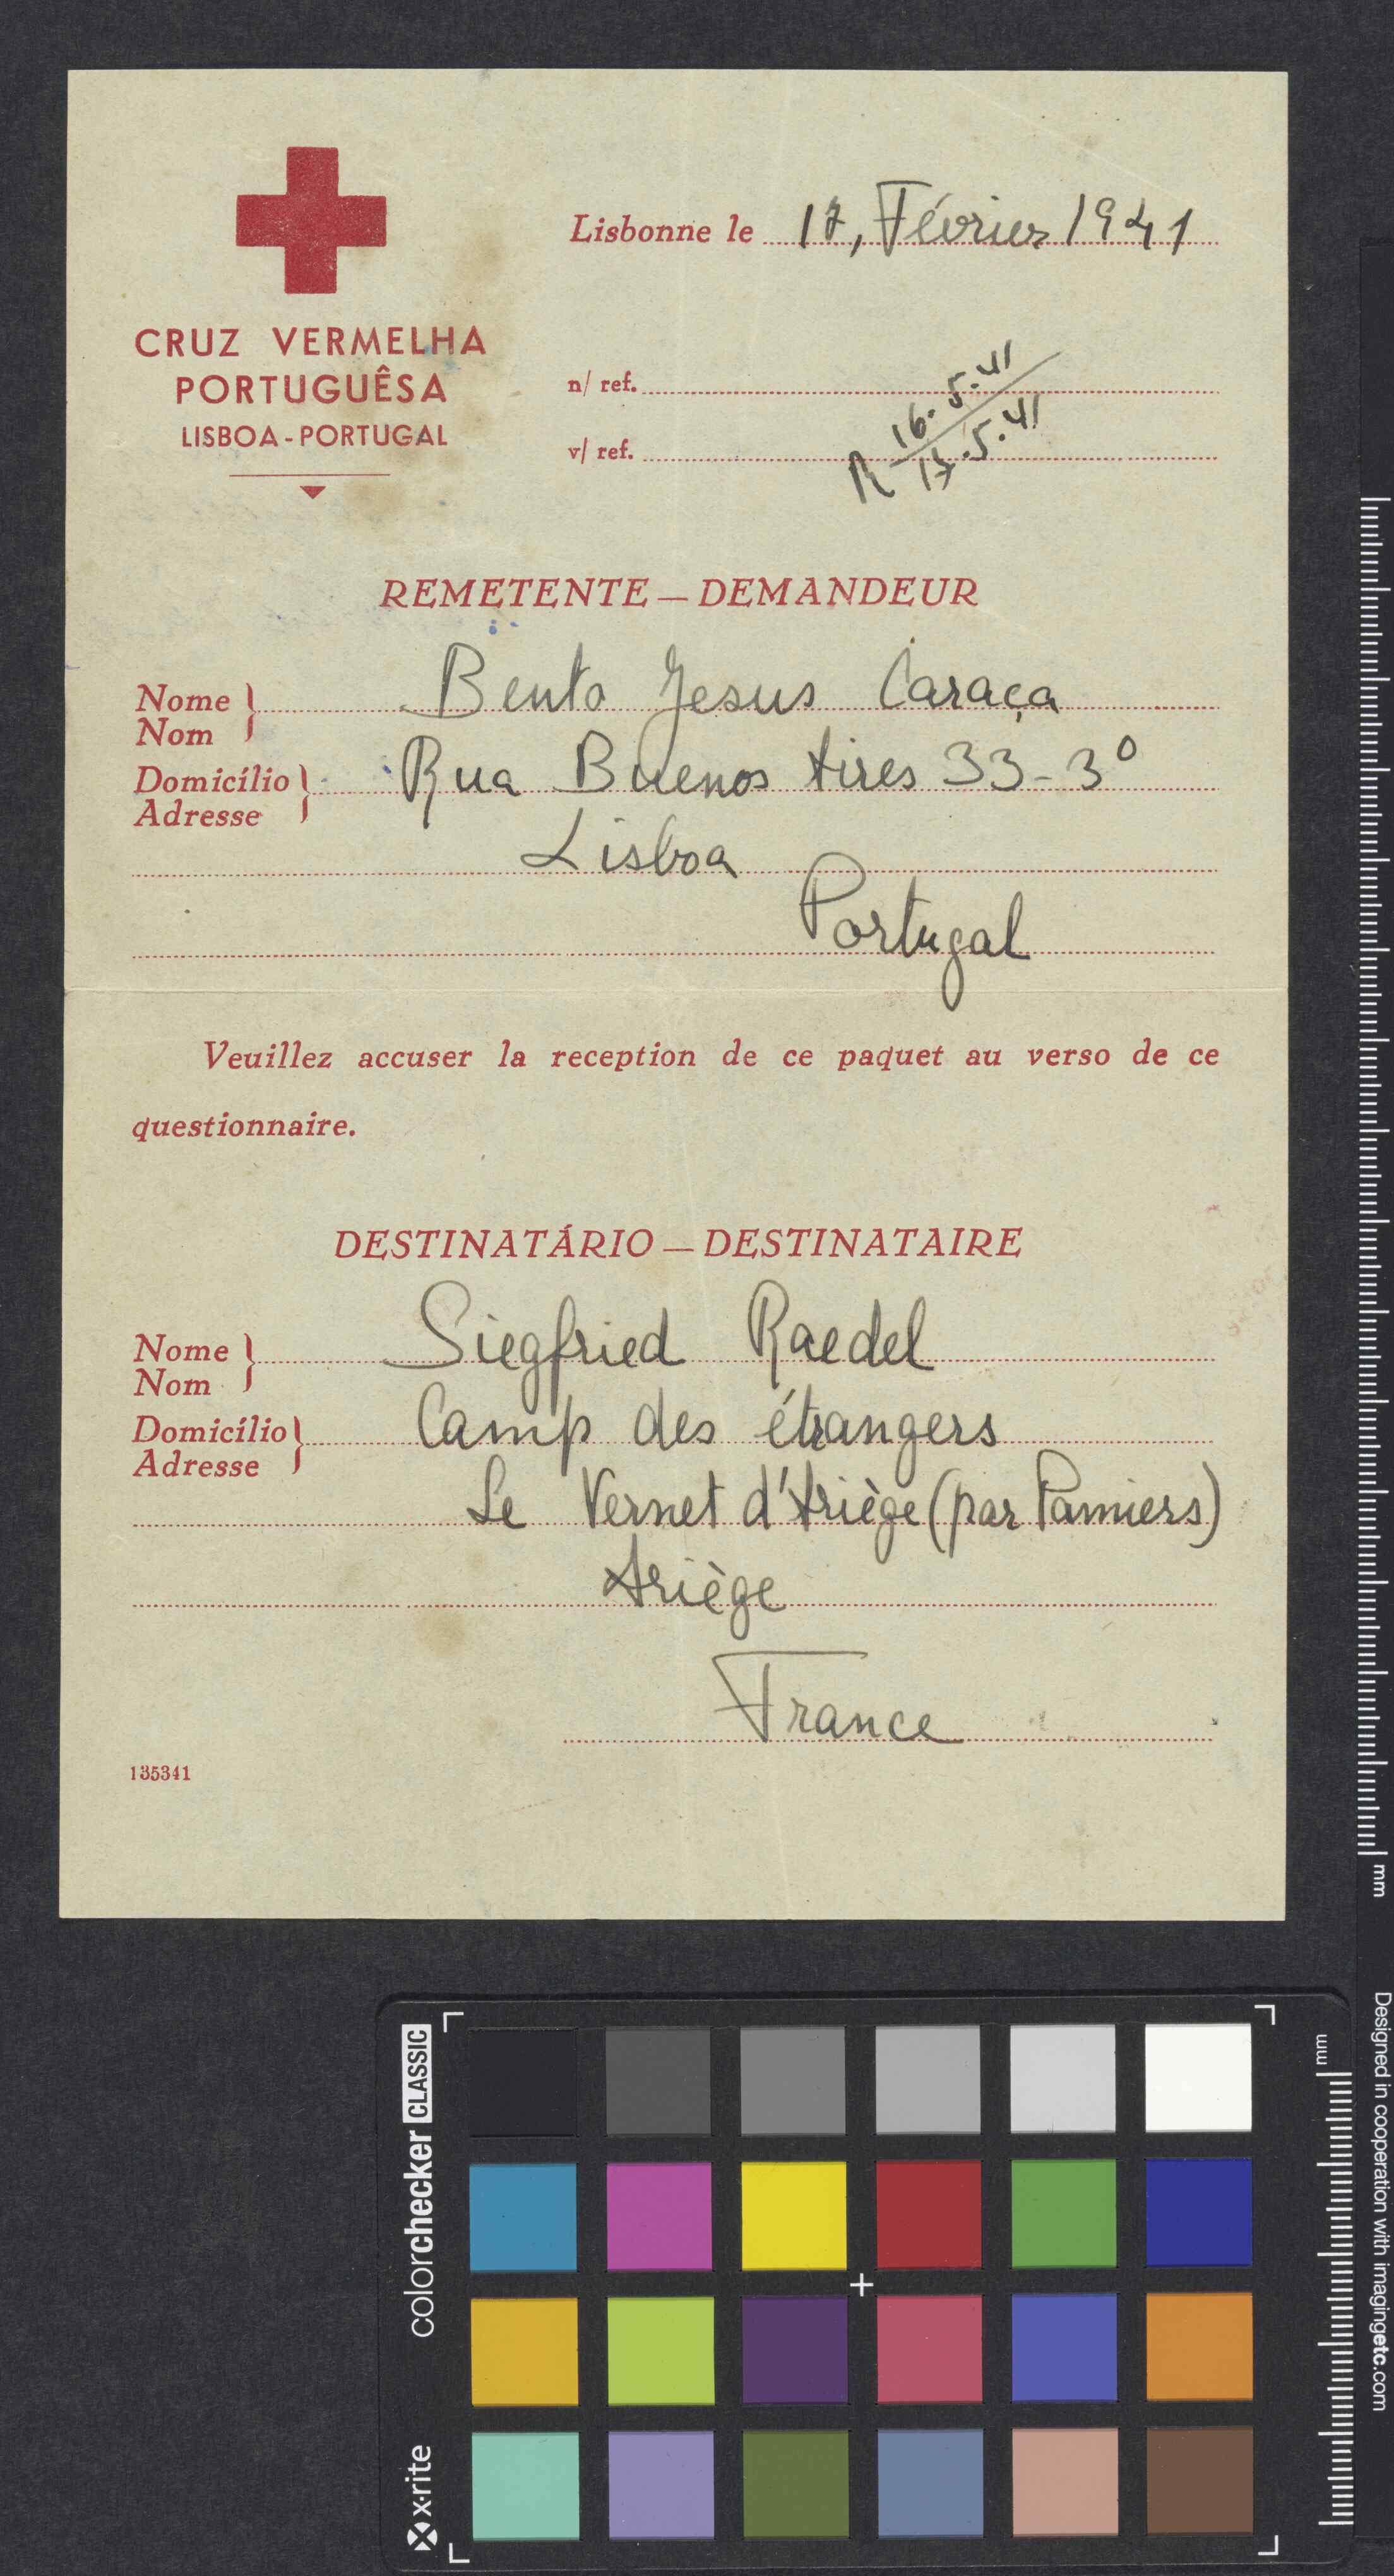 CRUZ VERMELHA
PORTUGUÊSA
LISBOA - PORTUGAL
Lisbonne le 17, Février 1941
n/ ref.
v/ ref.
R 16.5.41
17.5.41
REMETENTE — DEMANDEUR
Nome } Bento Jesus Caraça
Nom
Domicílio } Rua Buenos Aires 33-3º
Adresse
Lisboa
Portugal
Veuillez accuser la reception de ce paquet au verso de ce
questionnaire.
DESTINATÁRIO — DESTINATAIRE
Nome } Siegfried Raedel
Nom
Domicílio } Camp des étrangers
Adresse
Le Vernet d'Ariège (par Pamiers)
Ariège
France
135341
mm
Designed in cooperation with imagingetc.com
mm
colorchecker CLASSIC
x-rite